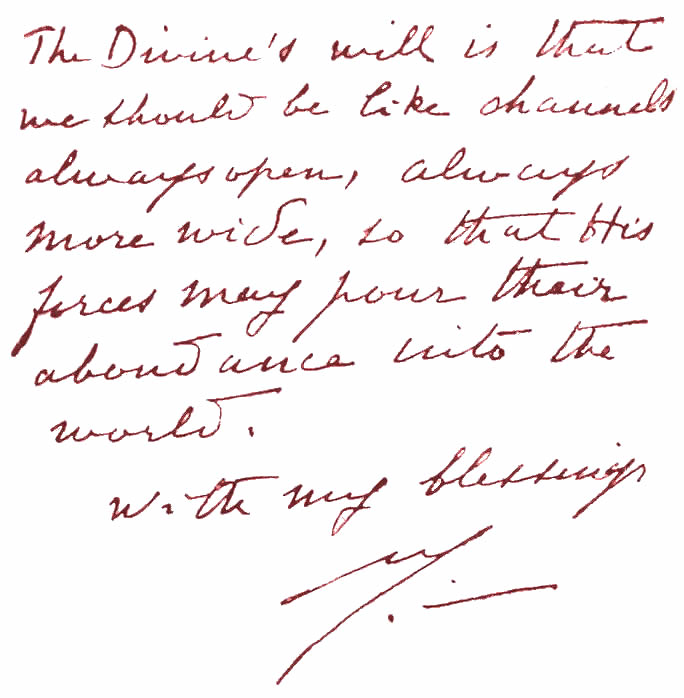 The Divine's will is that
we should be like channels
always open, always
more wide, so that His
forces may pour their
abondance into the
world.
With my blessings